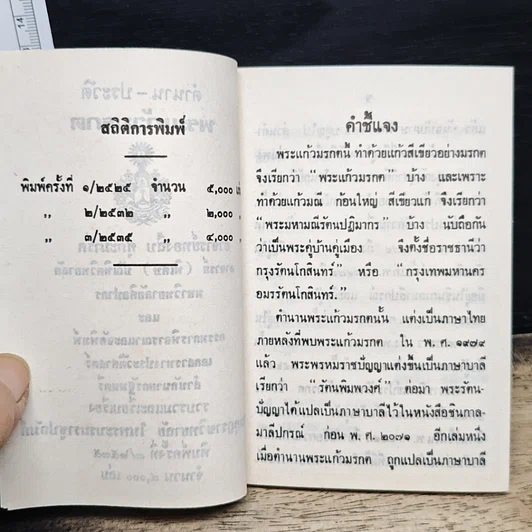 สถิติการพิมพ์
พิมพ์ครั้งที่ ๑/๒๕๒๕ จำนวน ๕,๐๐๐
,, ๒/๒๕๓๒ ,, ๒,๐๐๐
,, ๓/๒๕๓๕ ,, ๔,๐๐๐
คำชี้แจง
พระแก้วมรกตนี้ ทำด้วยแก้วสีเขียวอย่างมรกต
จึงเรียกว่า "พระแก้วมรกต" บ้าง และเพราะ
ทำด้วยแก้วมณี ก้อนใหญ่ สีเขียวแก่ จึงเรียกว่า
"พระมหามณีรัตนปฏิมากร" บ้าง นับถือกัน
ว่าเป็นพระคู่บ้านคู่เมือง จึงตั้งชื่อราชธานีว่า
กรุงรัตนโกสินทร์ หรือ "กรุงเทพมหานคร
อมรรัตนโกสินทร์."
ตำนานพระแก้วมรกตนั้น แต่งเป็นภาษาไทย
ภายหลังที่พบพระแก้วมรกต ใน พ. ศ. ๑๙๗๔
แล้ว พระพรหมราชปัญญาแต่งขึ้นเป็นภาษาบาลี
เรียกว่า "รัตนพิมพวงศ์" ต่อมา พระรัตน-
ปัญญาได้แปลเป็นภาษาบาลีไว้ในหนังสือชินกาล-
มาลีปกรณ์ ก่อน พ. ศ. ๒๐๗๑ อีกเล่มหนึ่ง
เมื่อตำนานพระแก้วมรกต ถูกแปลเป็นภาษาบาลี